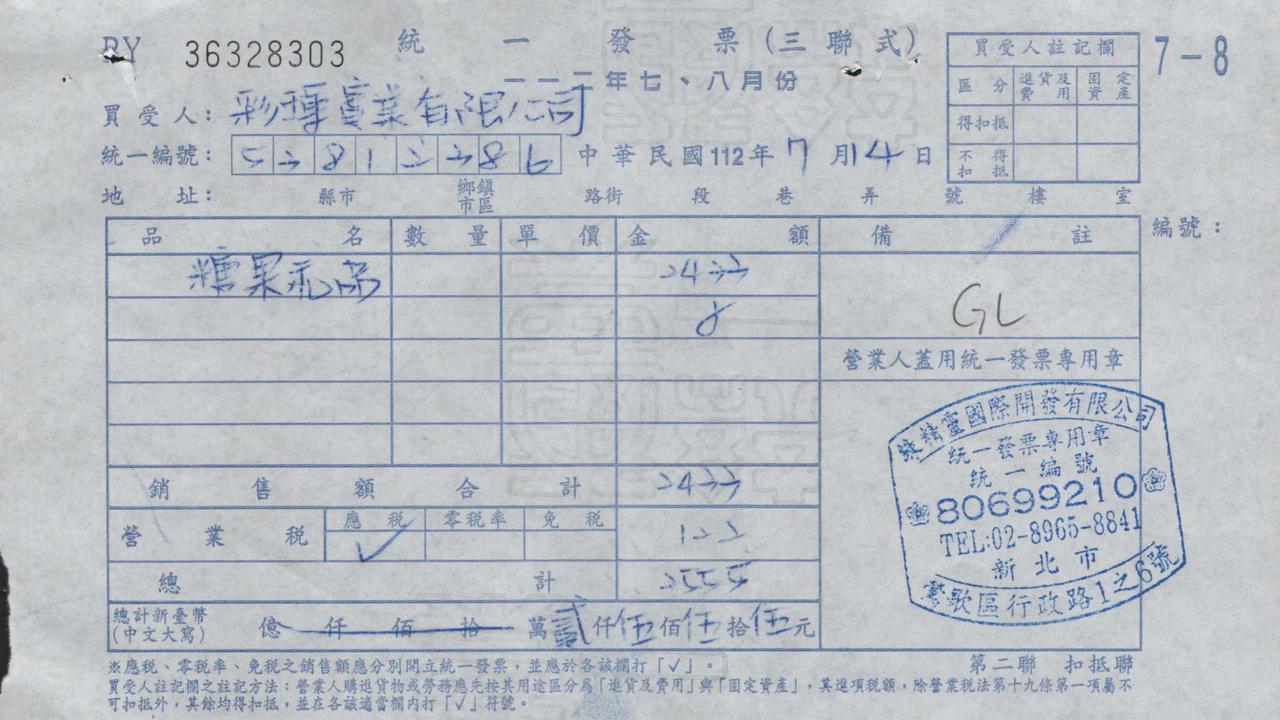 RY 36328303 統一發票(三聯式)
一一二年七、八月份
7-8
買受人註記欄
區分 進貨及費用 固定資產
得扣抵
不得扣抵
買受人: 實業有限公司
統一編號: 53812386 中華民國112年7月14日
地址: 縣市 鄉鎮市區 路街 段 巷 弄 號 樓 室
品名 數量 單價 金額 備註 編號:
糖果礼品 2433
GL
營業人蓋用統一發票專用章
銷售額合計 2433
營業稅 應稅 零稅率 免稅
✓ 122
總計 2555
總計新臺幣(中文大寫) 億仟佰拾萬貳仟伍佰伍拾伍元
綠精靈國際開發有限公司
統一發票專用章
統一編號
80699210
TEL:02-8965-8841
新北市
鶯歌區行政路1之6號
※應稅、零稅率、免稅之銷售額應分別開立統一發票,並應於各該欄打「√」。
第二聯 扣抵聯
買受人註記欄之註記方法:營業人購進貨物或勞務應先按其用途區分為「進貨及費用」與「固定資產」,其進項稅額,除營業稅法第十九條第一項屬不
可扣抵外,其餘均得扣抵,並在各該適當欄內打「√」符號。